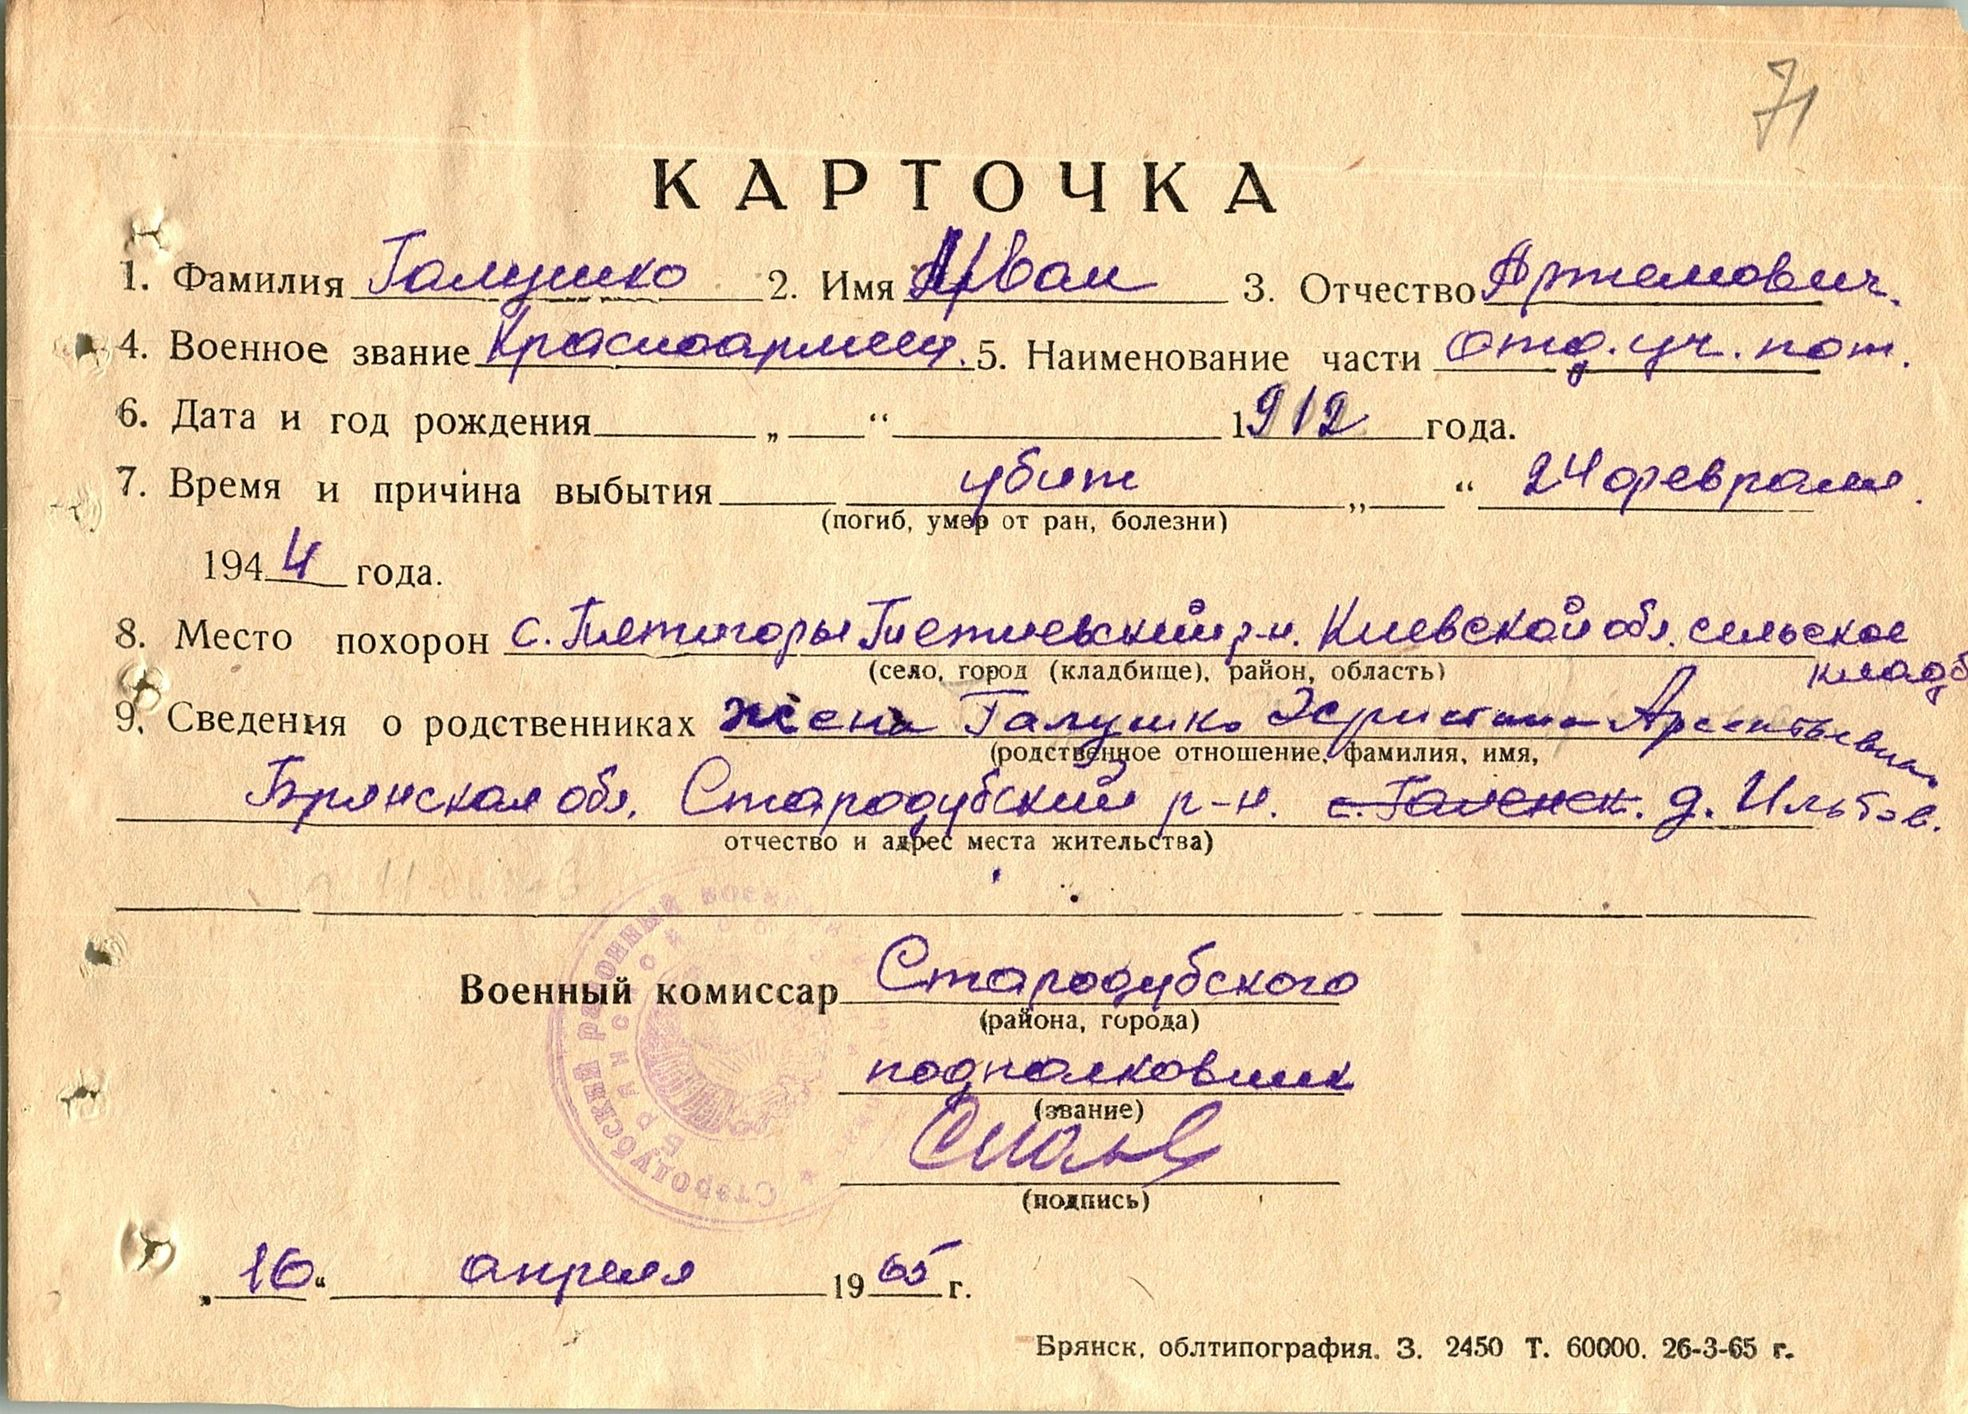 71
КАРТОЧКА
1. Фамилия Галушко 2. Имя Иван 3. Отчество Артемович.
4. Военное звание Красноармеец. 5. Наименование части отд. уч. пот.
6. Дата и год рождения „ “ 1912 года.
7. Время и причина выбытия убит „ “ 24 февраля.
(погиб, умер от ран, болезни)
1944 года.
8. Место похорон с. Пятигоры Тетиевский р-н. Киевской обл. сельское
кладб
(село, город (кладбище), район, область)
9. Сведения о родственниках жена Галушко Христина Арсентьевна
(родственное отношение, фамилия, имя,
Брянская обл. Стародубский р-н. с. Галенск. д. Ильбов.
отчество и адрес места жительства)
Военный комиссар Стародубского
(района, города)
подполковник
(звание)
(подпись)
Стародубский районный военный
Брянской
„16“ апреля 1965 г.
Брянск, облтипография. З. 2450 Т. 60000. 26-3-65 г.